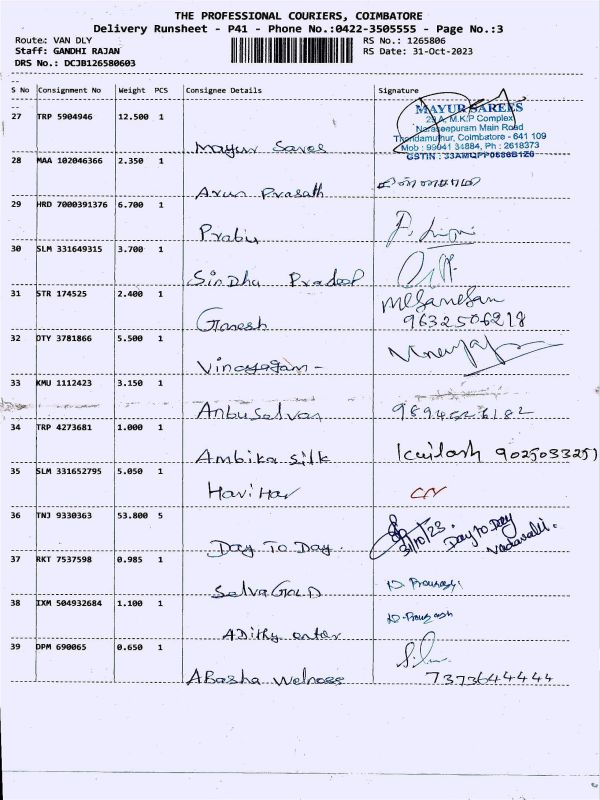 THE PROFESSIONAL COURIERS, COIMBATORE
Delivery Runsheet - P41 - Phone No.:0422-3505555 - Page No.:3
Route: VAN DLY RS No.: 1265806
Staff: GANDHI RAJAN RS Date: 31-Oct-2023
DRS No.: DCJB126580603
S No Consignment No Weight PCS Consignee Details Signature
27 TRP 5904946 12.500 1
MAYUR SAREES
29 A, M.K.P Complex
Naraseepuram Main Road
Thondamuthur, Coimbatore - 641 109
Mob : 99941 34884, Ph : 2618373
Mayur Sares
28 MAA 102046366 2.350 1
Arun Prasath
29 HRD 7000391376 6.700 1
Prabu
30 SLM 331649315 3.700 1
Sindhu Pradeep
31 STR 174525 2.400 1
Ganesh MGanesan
9632506218
32 DTY 3781866 5.500 1
Vinayagam -
33 KMU 1112423 3.150 1
Anbuselvan
34 TRP 4273681 1.000 1
Ambika silk Kailash 9025033251
35 SLM 331652795 5.050 1
Hari Har
36 TNJ 9330363 53.800 5
Day To Day. 31/10/23. Day to Day
Vadavalli.
37 RKT 7537598 0.985 1
Selva Gold
38 IXM 504932684 1.100 1
Adithy enter
39 DPM 690065 0.650 1
ABasha Welness 7373644444